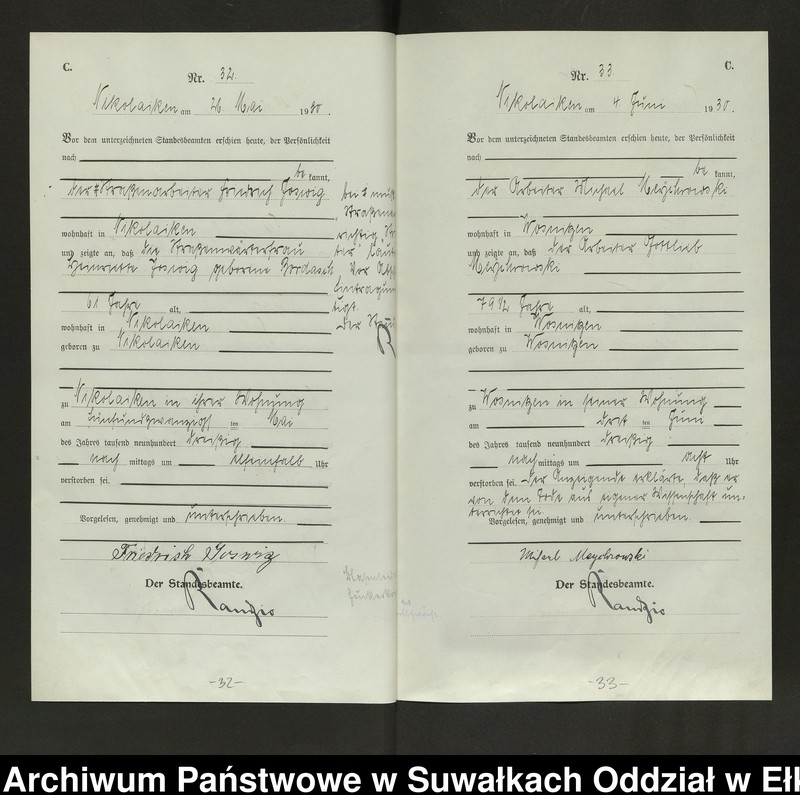 C.
Nr. 32
Nikolaiken am 26. Mai 1930.
Vor dem unterzeichneten Standesbeamten erschien heute, der Persönlichkeit
nach
be kannt,
der Straßenarbeiter Friedrich Joswig
wohnhaft in Nikolaiken
und zeigte an, daß die Straßenwärterfrau
Henriette Joswig geborene
61 Jahre alt,
wohnhaft in Nikolaiken
geboren zu Nikolaiken
zu Nikolaiken in ihrer Wohnung
am fünfundzwanzigsten ten Mai
des Jahres tausend neunhundert dreißig
nach mittags um elfeinhalb Uhr
verstorben sei.
Vorgelesen, genehmigt und unterschrieben.
Friedrich Joswig
Der Standesbeamte.
-32-
C.
Nr. 33
Nikolaiken am 4. Juni 1930.
Vor dem unterzeichneten Standesbeamten erschien heute, der Persönlichkeit
nach
be kannt,
der Arbeiter Michael
wohnhaft in Wosnitzen
und zeigte an, daß der Arbeiter Gottlieb
79 1/2 Jahre alt,
wohnhaft in Wosnitzen
geboren zu Wosnitzen
zu Wosnitzen in seiner Wohnung
am drit ten Juni
des Jahres tausend neunhundert dreißig
nach mittags um acht Uhr
verstorben sei. Der Anzeigende erklärte, daß er
von dem Tode aus eigener Wissenschaft un-
terrichtet sei.
Vorgelesen, genehmigt und unterschrieben.
Der Standesbeamte.
-33-
Archiwum Państwowe w Suwałkach Oddział w Ełk